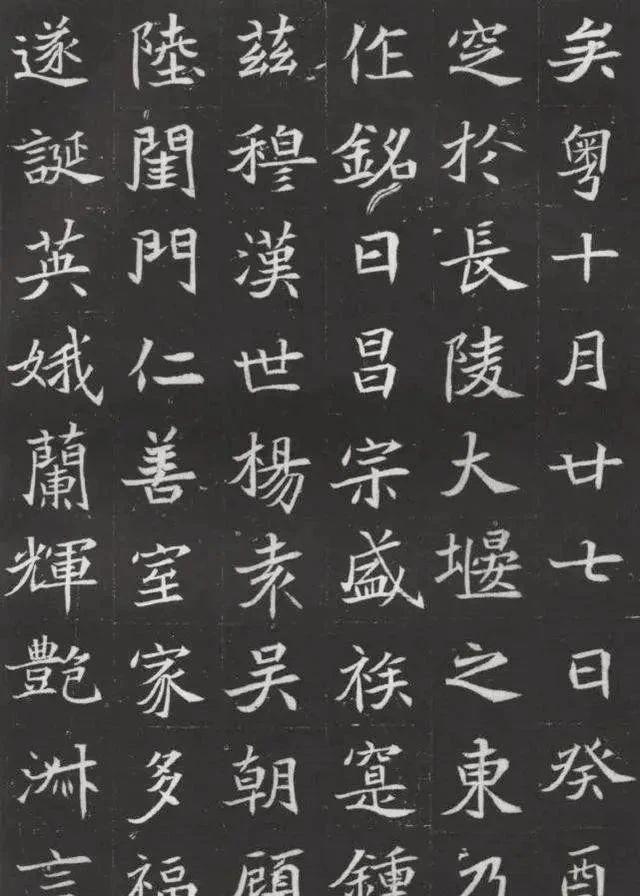 矣粤十月廿七日癸酉
窆於長陵大堰之東乃
作銘曰昌宗盛族寔鍾
茲穆漢世楊袁吴朝顧
陸閨門仁善室家多福
遂誕英娥蘭輝艷淑言